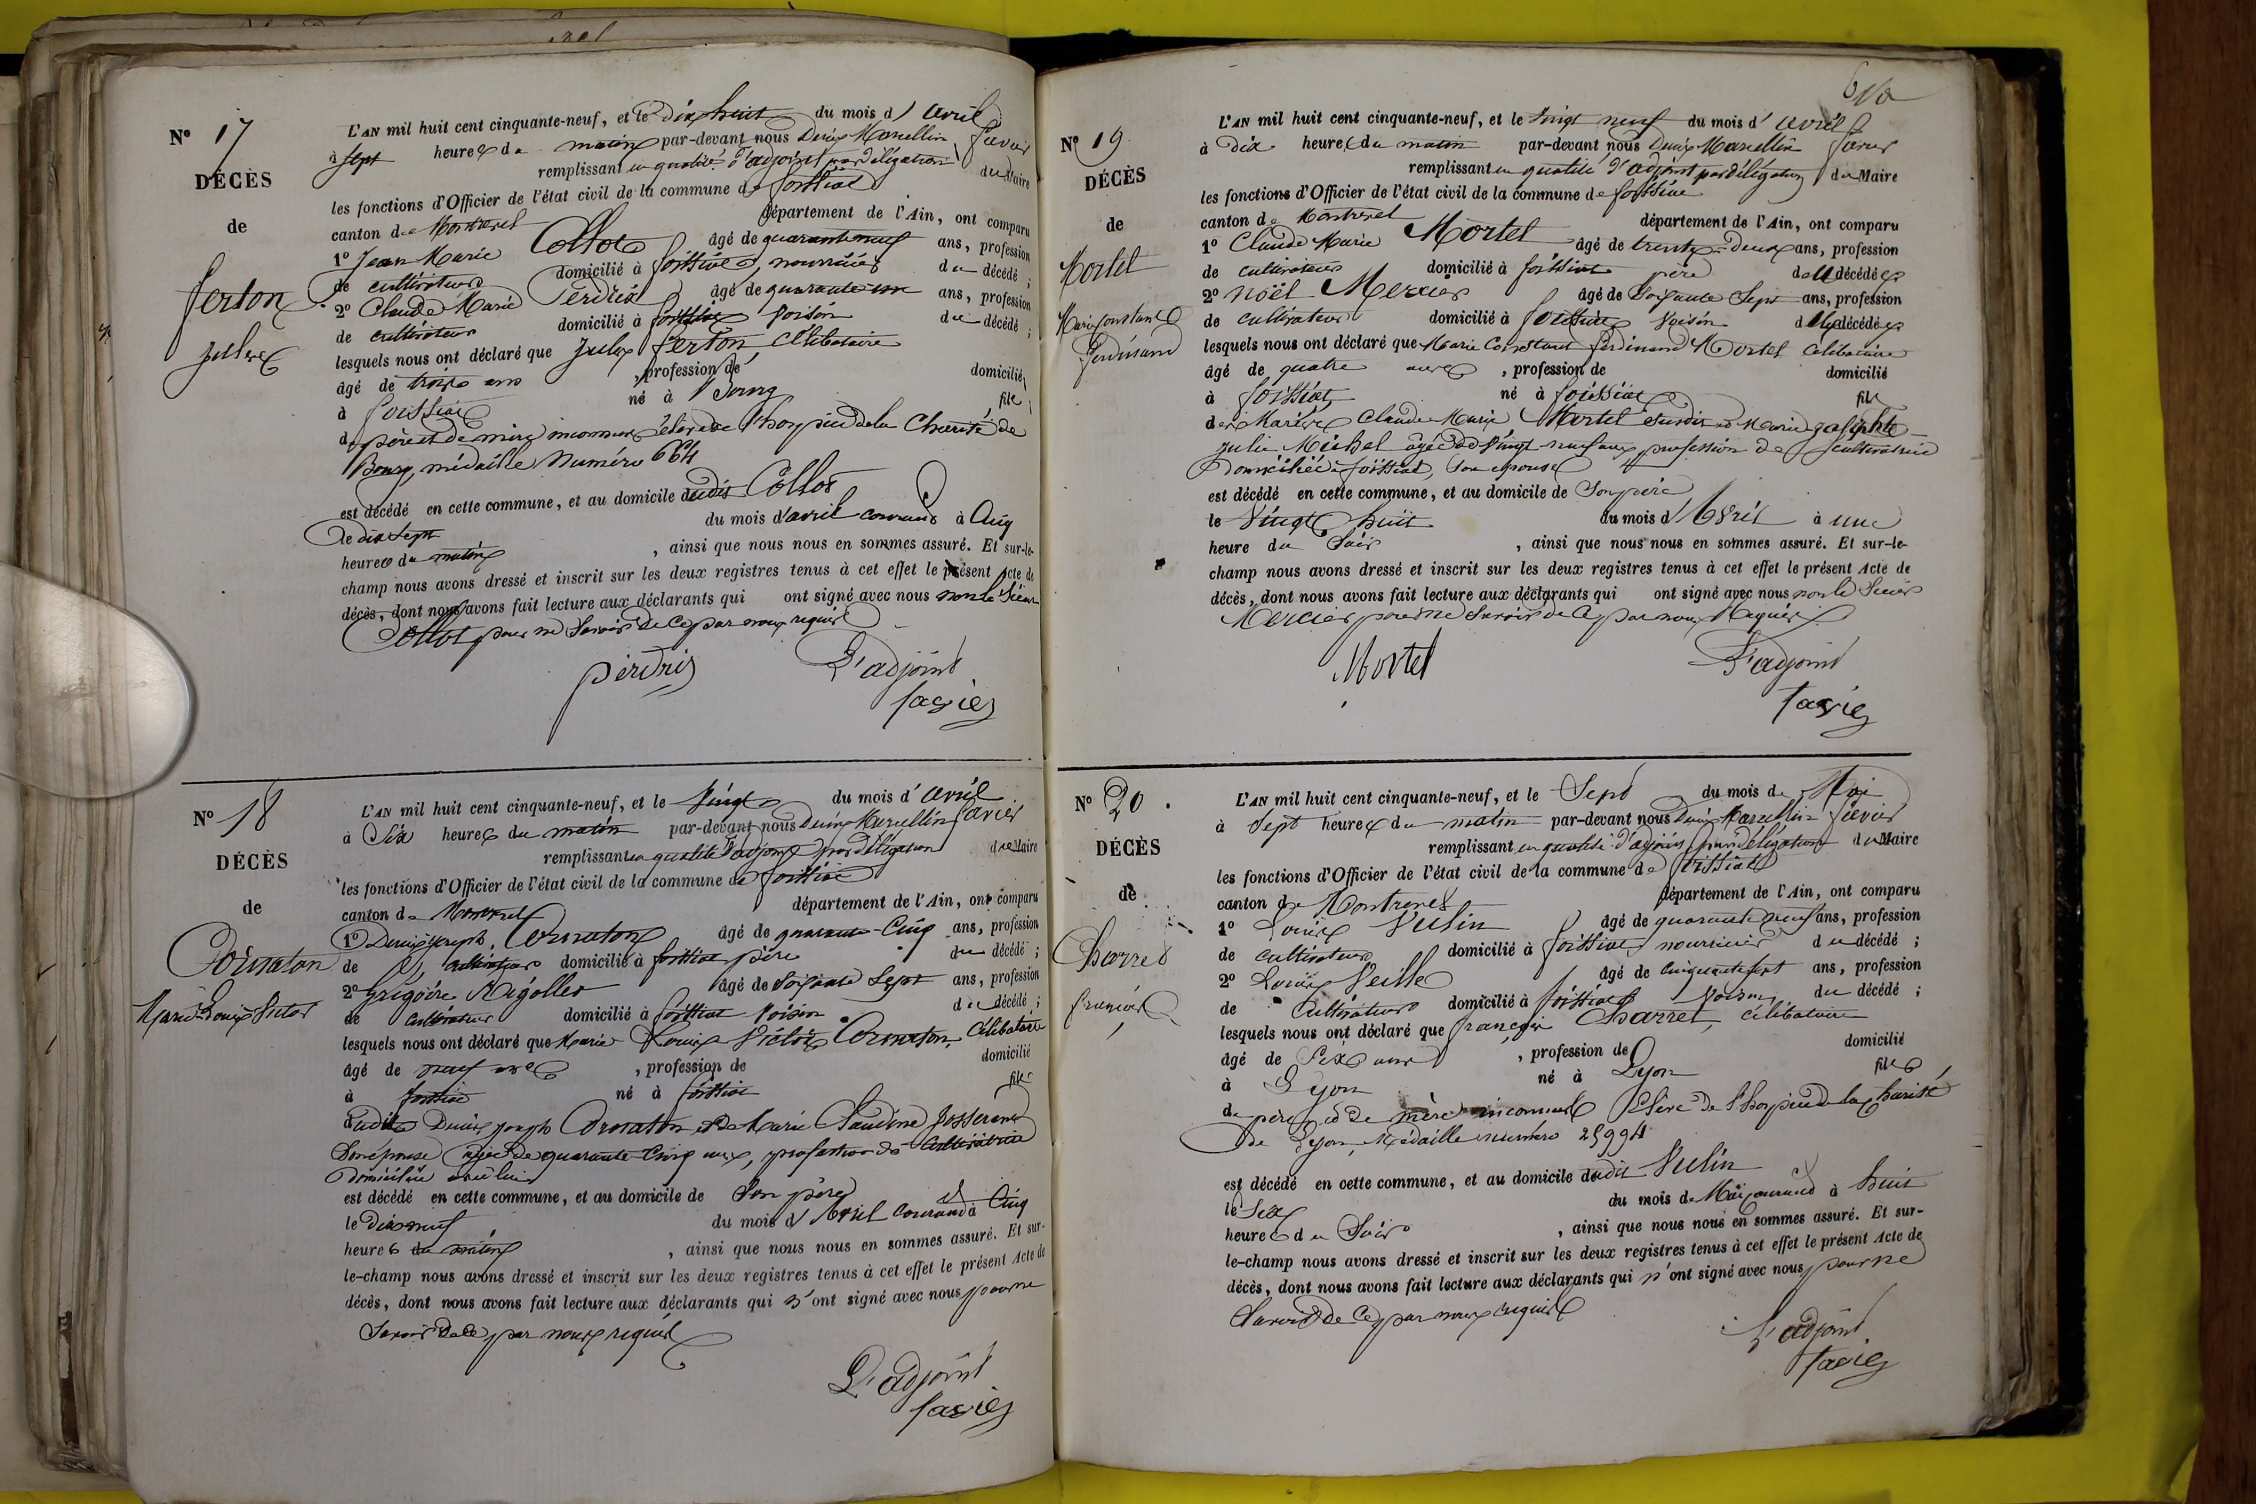 N° 17
DÉCÈS
de
ferton
Jules
L'AN mil huit cent cinquante-neuf, et le dix huit du mois d' avril
à sept heures du matin par-devant nous Denis Marcellin favier
remplissant en qualité d'adjoint par délégation du Maire
les fonctions d'Officier de l'état civil de la commune de foissiat
canton de Montrevel département de l'Ain, ont comparu
1° Jean Marie Collot âgé de quarante neuf ans, profession
de cultivateur domicilié à foissiat, nourricier du décédé ;
2° Claude Marie Perdrix âgé de quarante un ans, profession
de cultivateur domicilié à foissiat voisin du décédé ;
lesquels nous ont déclaré que Jules ferton, Célibataire
âgé de trois ans , profession de domicilié
à foissiat né à Bourg fils
de père et de mère inconnus élève de l'hospice de la Charité de
Bourg, médaille numéro 664
est décédé en cette commune, et au domicile dudit Collot
le dix sept du mois d'avril courant à Cinq
heures du matin , ainsi que nous nous en sommes assuré. Et sur-le-
champ nous avons dressé et inscrit sur les deux registres tenus à cet effet le présent Acte de
décès, dont nous avons fait lecture aux déclarants qui ont signé avec nous non le Sieur
Collot pour ne savoir de ce par nous requis
perdrix L'adjoint
favier
N° 18
DÉCÈS
de
Cornaton
Marie Louis Victor
L'AN mil huit cent cinquante-neuf, et le Vingt du mois d' avril
à Six heures du matin par-devant nous Denis Marcellin favier
remplissant en qualité d'adjoint par délégation du Maire
les fonctions d'Officier de l'état civil de la commune de foissiat
canton de Montrevel département de l'Ain, ont comparu
1° Denis joseph Cornaton âgé de quarante-Cinq ans, profession
de cultivateur domicilié à foissiat père du décédé ;
2° Grégoire Rigollet âgé de Soixante Sept ans, profession
de cultivateur domicilié à foissiat voisin du décédé ;
lesquels nous ont déclaré que Marie Louis Victor Cornaton, Célibataire
âgé de neuf , profession de domicilié
à foissiat né à foissiat fils
dudit Denis joseph Cornaton et de Marie Claudine Josserand
Son épouse âgée de quarante-Cinq ans, profession de Cultivatrice
Domiciliée avec lui
est décédé en cette commune, et au domicile de Son père
le Dix neuf du mois d' Avril Courant à Cinq
heures du matin , ainsi que nous nous en sommes assuré. Et sur-
le-champ nous avons dressé et inscrit sur les deux registres tenus à cet effet le présent Acte de
décès, dont nous avons fait lecture aux déclarants qui n'ont signé avec nous pour ne
Savoir de ce par nous requis
L'adjoint
favier
N° 19
DÉCÈS
de
Mortel
Marie Constant
ferdinand
L'AN mil huit cent cinquante-neuf, et le Vingt neuf du mois d' avril
à dix heures du matin par-devant nous Denis Marcellin favier
remplissant en qualité d'adjoint par délégation du Maire
les fonctions d'Officier de l'état civil de la commune de foissiat
canton de Montrevel département de l'Ain, ont comparu
1° Claude Marie Mortel âgé de trente-deux ans, profession
de cultivateur domicilié à foissiat père décédé
2° Noël Mercier âgé de Soixante Sept ans, profession
de cultivateur domicilié à foissiat voisin décédé
lesquels nous ont déclaré que Marie Constant ferdinand Mortel Célibataire
âgé de quatre , profession de domicilié
à foissiat né à foissiat fils
de Claude Marie Mortel Susdit et Marie josephte
Julie Michel âgée de Vingt-neuf ans profession de cultivatrice
Domiciliée à foissiat, Son épouse
est décédé en cette commune, et au domicile de Son père
le Vingt huit du mois d' Avril à une
heure du Soir , ainsi que nous nous en sommes assuré. Et sur-le-
champ nous avons dressé et inscrit sur les deux registres tenus à cet effet le présent Acte de
décès, dont nous avons fait lecture aux déclarants qui ont signé avec nous non le Sieur
Mercier pour ne Savoir de ce par nous Requis
Mortel L'adjoint
favier
N° 20
DÉCÈS
de
Charret
françois
L'AN mil huit cent cinquante-neuf, et le Sept du mois de Mai
à Sept heures du matin par-devant nous Denis Marcellin favier
remplissant en qualité d'adjoint par délégation du Maire
les fonctions d'Officier de l'état civil de la commune de foissiat
canton de Montrevel département de l'Ain, ont comparu
1° Louis Vulin âgé de quarante neuf ans, profession
de cultivateur domicilié à foissiat nourricier du décédé ;
2° Louis Veille âgé de Cinquante sept ans, profession
de Cultivateur domicilié à foissiat Voisin du décédé ;
lesquels nous ont déclaré que françois Charret, célibataire
âgé de Six ans , profession de domicilié
à Lyon né à Lyon fils
de père et de mère inconnus Elève de l'hospice de la charité
de Lyon, Médaille numéro 25994
est décédé en cette commune, et au domicile dudit Vulin
le Six du mois de Mai courant à huit
heures du Soir , ainsi que nous nous en sommes assuré. Et sur-
le-champ nous avons dressé et inscrit sur les deux registres tenus à cet effet le présent Acte de
décès, dont nous avons fait lecture aux déclarants qui n'ont signé avec nous pour ne
Savoir de Ce par nous requis
L'adjoint
favier